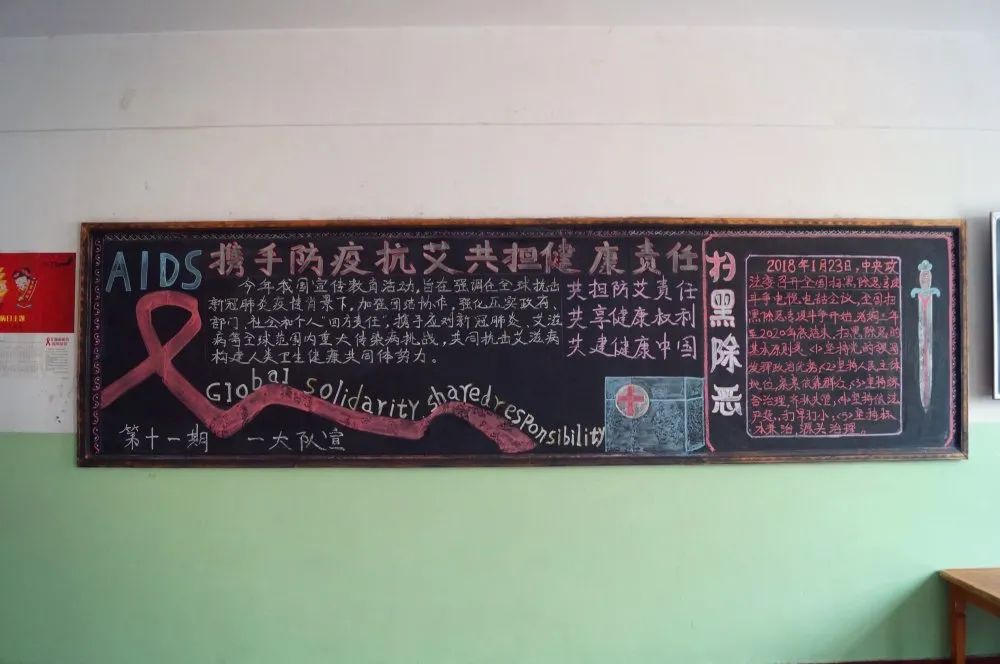 AIDS 携手防疫抗艾共担健康责任
今年我国宣传教育活动,旨在强调在全球抗击
新冠肺炎疫情背景下,加强团结协作,强化压实政府、
部门、社会和个人"四方责任",携手应对新冠肺炎、艾滋
病等全球范围内重大传染病挑战,共同抗击艾滋病
构建人类卫生健康共同体努力。
共担防艾责任
共享健康权利
共建健康中国
Global solidarity shared responsibility
第十一期 一大队宣
扫黑除恶
2018年1月23日,中央政
法委召开全国扫黑除恶专项
斗争电视电话会议,全国扫
黑除恶专项斗争开始,为期三年
至2020年底结束。扫黑除恶的
基本原则是<1>坚持党的领导
发挥政治优势<2>坚持人民主体
地位,紧紧依靠群众,<3>坚持综
合治理,齐抓共管,<4>坚持依法
严惩,打早打小,<5>坚持标
本兼治,源头治理。
病日主题